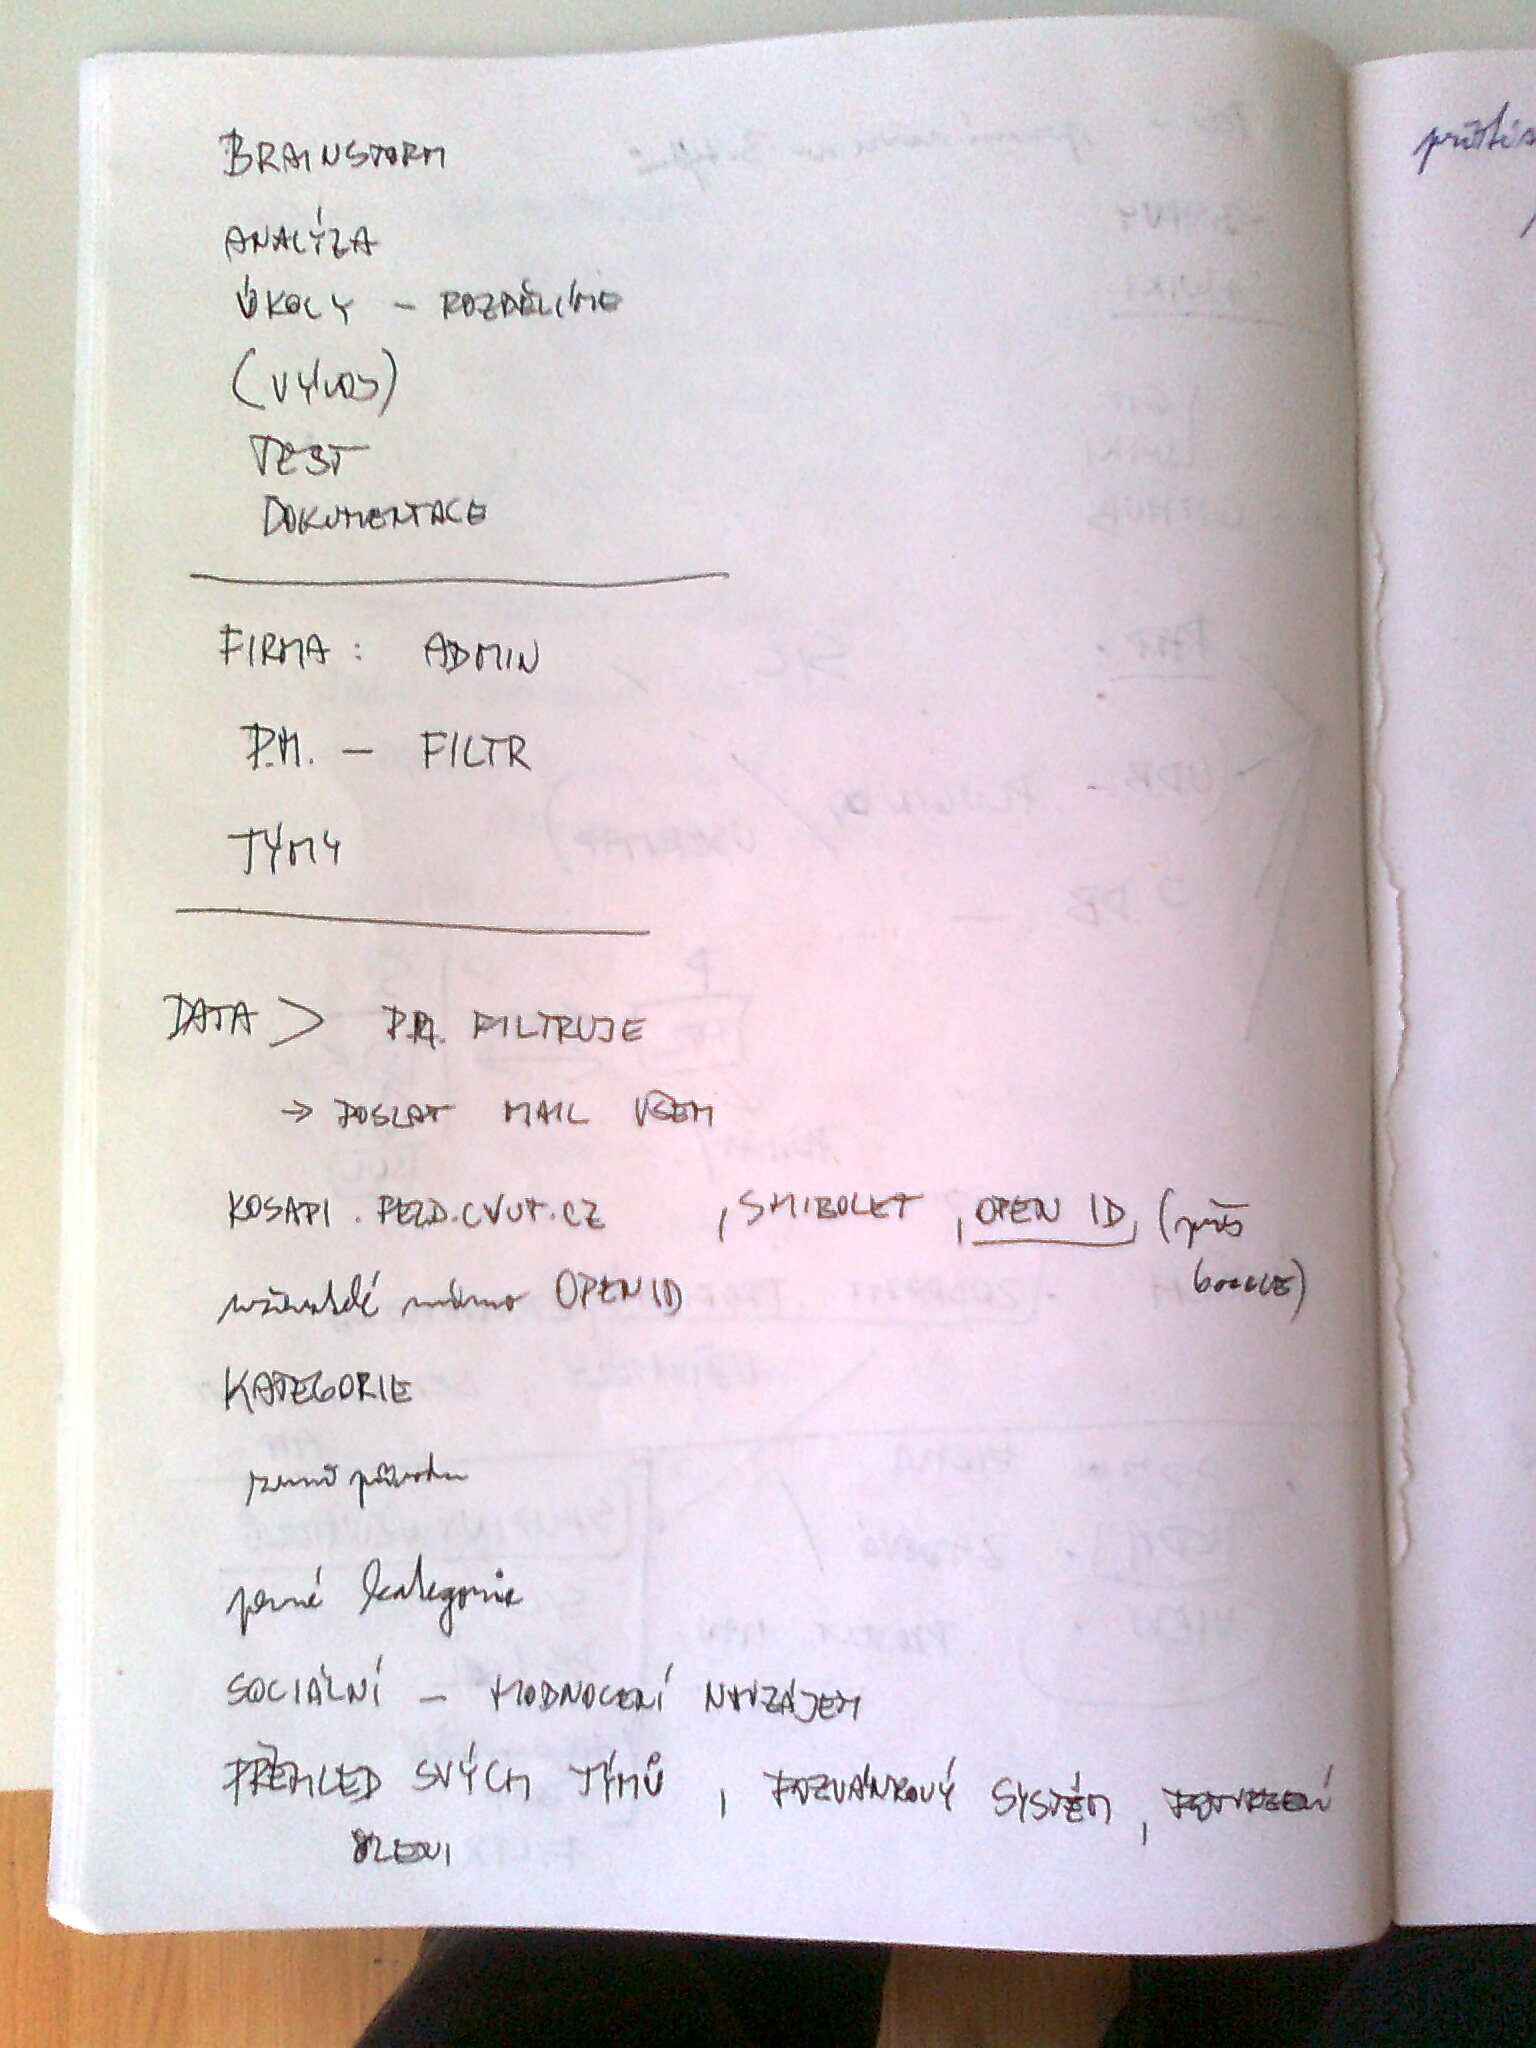 BRAINSTORM
ANALÝZA
ÚKOLY – ROZDĚLÍME
(VÝVOJ)
TEST
DOKUMENTACE
FIRMA: ADMIN
P.M. – FILTR
TÝMY
DATA > P.M. FILTRUJE
→ POSLAT MAIL VŠEM
KOSAPI.FELD.CVUT.CZ , SHIBOLET , OPEN ID, (přes
GOOGLE)
uživatelé mimo OPENID
KATEGORIE
země původu
pevné kategorie
SOCIÁLNÍ – HODNOCENÍ NAVZÁJEM
PŘEHLED SVÝCH TÝMŮ , POZVÁNKOVÝ SYSTÉM , POTVRZENÍ